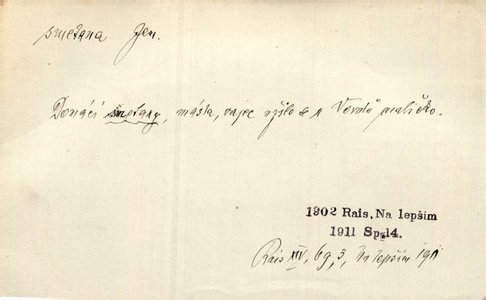 smetana Jen.
Domácí smetany, másla, vajec užilo se u Vondrů maličko.
1902 Rais, Na lepším
1911 Sp. 14.
Rais XIV, 69, 3, Na lepším 1911